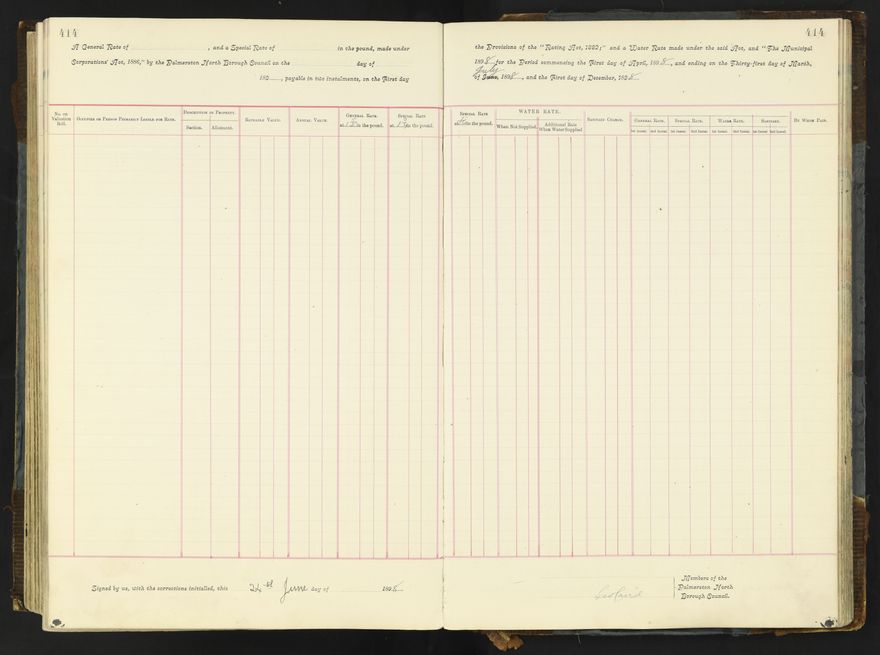 414
A General Rate of , and a Special Rate of in the pound, made under
Corporations' Act, 1886," by the Palmerston North Borough Council on the day of
189 , payable in two instalments, on the First day
No. on Valuation Roll.
Occupier or Person Primarily Liable for Rate.
Description of Property.
Section. Allotment.
Rateable Value.
Annual Value.
General Rate at in the pound.
Special Rate at in the pound.
Signed by us, with the corrections initialled, this June day of 1898
414
the Provisions of the "Rating Act, 1882;" and a Water Rate made under the said Act, and "The Municipal
1898 for the Period commencing the First day of April, 1898, and ending on the Thirty-first day of March,
July
of June, 1898, and the First day of December, 1898
Special Rate at in the pound.
WATER RATE.
When Not Supplied. Additional Rate When Water Supplied
Sanitary Charge.
General Rate. Special Rate. Water Rate. Sanitary.
1st Instmt. 2nd Instmt. 1st Instmt. 2nd Instmt. 1st Instmt. 2nd Instmt. 1st Instmt. 2nd Instmt.
By Whom Paid.
Members of the
Palmerston North
Borough Council.